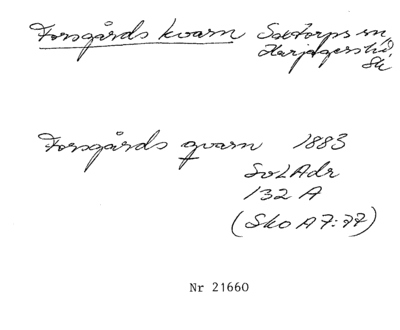 Forsgårds kvarn Saxtorps sn,
Harjagers hd
Sk
Forsgårds qvarn 1883
SvLAdr
132 A
(Sko A 7:77)
Nr 21660